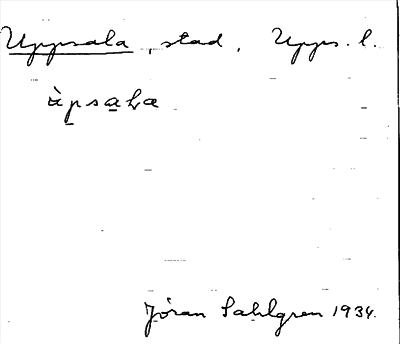 Uppsala, stad, Upps. l.
ùpsaLa
Jöran Sahlgren 1934.